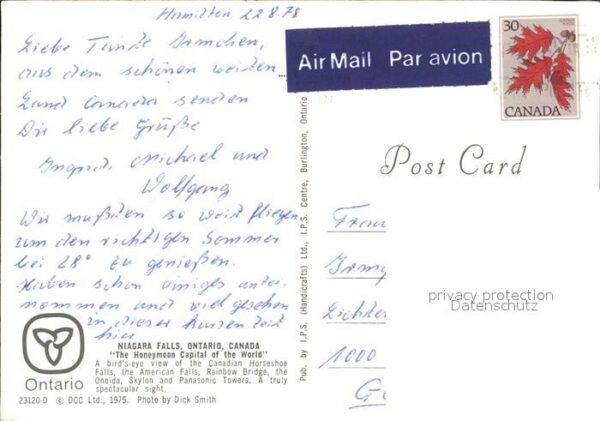 Hamilton 22.8.78
Liebe Tante Irmchen,
aus dem schönen weiten
Land Canada senden
Dir liebe Grüße
Ingrid, Michael und
Wolfgang
Wir mußten so weit fliegen
um den richtigen Sommer
bei 28° zu genießen.
Haben schon einiges unter-
nommen und viel gesehen
in dieser kurzen Zeit
hier
NIAGARA FALLS, ONTARIO, CANADA
"The Honeymoon Capital of the World"
A bird's-eye view of the Canadian Horseshoe
Falls, the American Falls, Rainbow Bridge, the
Oneida, Skylon and Panasonic Towers. A truly
spectacular sight.
Ontario
23120-D © DCC Ltd., 1975. Photo by Dick Smith
Pub. by I.P.S. (Handicrafts) Ltd., I.P.S. Centre, Burlington, Ontario
Air Mail Par avion
30
CANADA
Post Card
Frau
Irmg
Lichter
1000
privacy protection
Datenschutz